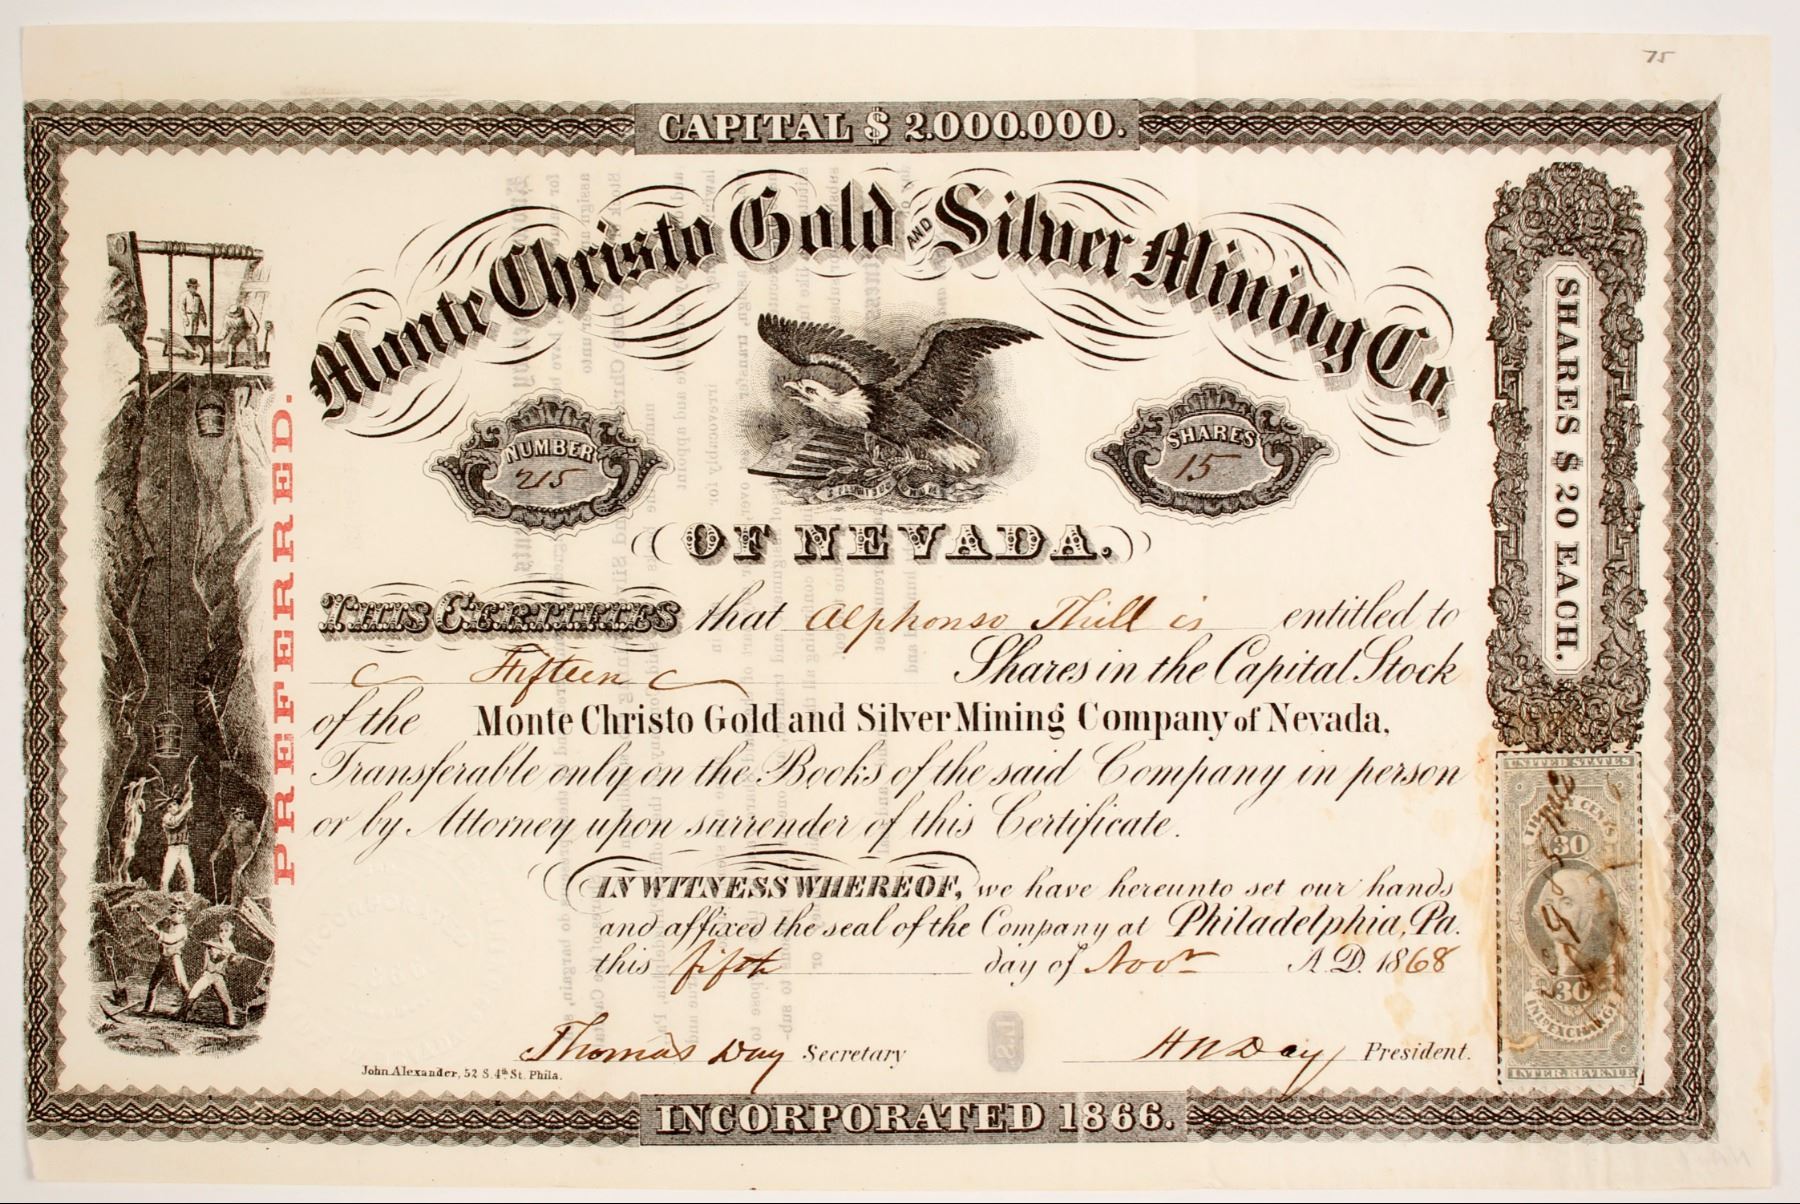 75
CAPITAL $ 2.000.000.
Monte Christo Gold AND Silver Mining Co.
NUMBER
215
SHARES
15
OF NEVADA.
PREFERRED.
THIS CERTIFIES that Alphonso Thill is entitled to
Fifteen Shares in the Capital Stock
of the Monte Christo Gold and Silver Mining Company of Nevada,
Transferable only on the Books of the said Company in person
or by Attorney upon surrender of this Certificate.
IN WITNESS WHEREOF, we have hereunto set our hands
and affixed the seal of the Company at Philadelphia, Pa.
this fifth day of Novr A.D. 1868
Thomas Day Secretary
H N Day President.
John Alexander, 52 S. 4th St. Phila.
I.R.S.
INCORPORATED 1866.
SHARES $ 20 EACH.
UNITED STATES
THIRTY CENTS
30
30
IND. EXCHANGE
INTER. REVENUE